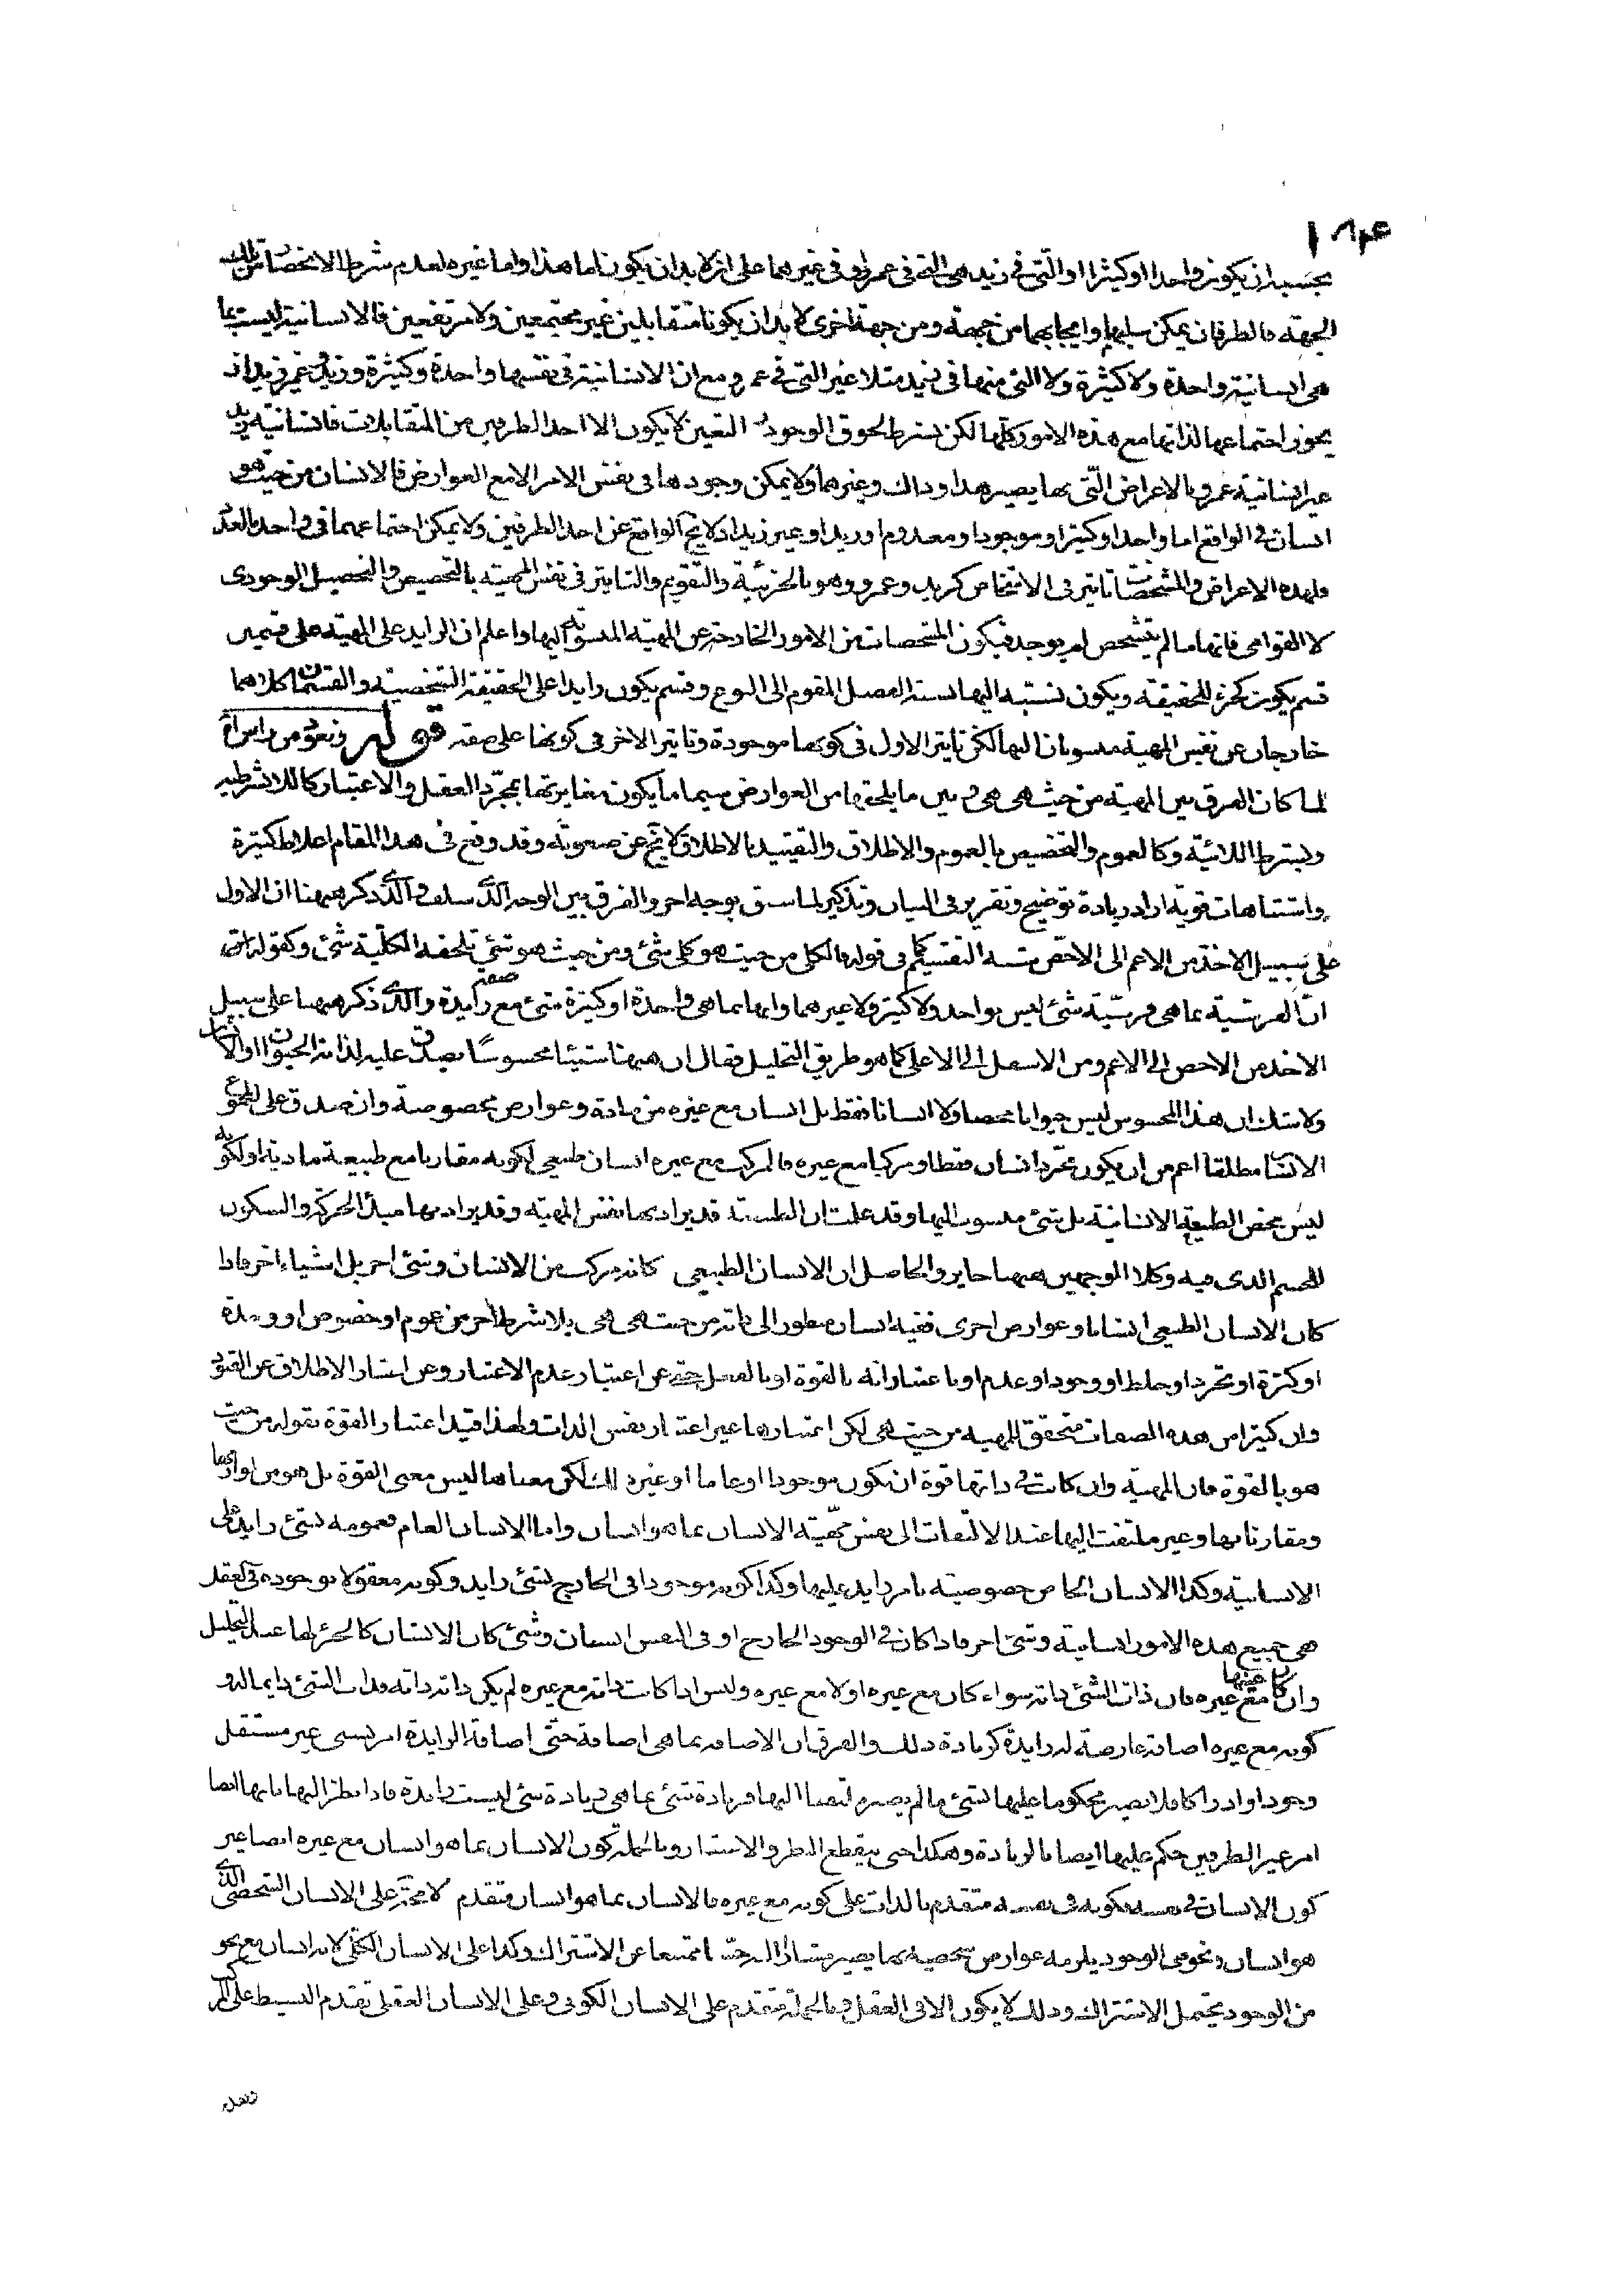 ١٨٤
بحسبه ان يكون واحدا او كثيرا او التى فى زيد هى التى فى عمرو او فى غيرهما على انه لا بد ان يكون اما هذا واما غيره لعدم شرط الانحصار من تلك
الجهة فالطرفان يمكن سلبهما وايجابهما من جهة ومن جهة اخرى لا بد ان يكونا متقابلين غير مجتمعين ولا مرتفعين فالانسانية ليست بما
هى انسانية واحدة ولا كثيرة ولا التى منها فى زيد مثلا غير التى فى عمرو مع ان الانسانية فى نفسها واحدة وكثيرة وزيد وعمرو زيد اذ
يجوز اجتماعها لذاتها مع هذه الامور كلها لكن بشرط لحوق الوجود التعين لا يكون الا احد الطرفين من المتقابلات فانسانية زيد
غير انسانية عمرو بالاعراض التى بها يصير هذا وذاك وغيرهما ولا يمكن وجودها فى نفس الامر الا مع العوارض فالانسان من حيث هو
انسان فى الواقع اما واحد او كثير او موجود او معدوم او زيد او غير زيد اذ لا يخ الواقع عن احد الطرفين ولا يمكن اجتماعهما فى واحد بالعدد
ولهذه الاعراض والمشخصات تاثير فى الاشخاص كزيد وعمرو وهو بالجزئية والتقويم والتاثير فى نفس المهية بالتخصيص والتحصيل الوجودى
لا القوامى فانها ما لم يتشخص لم يوجد فيكون المشخصات من الامور الخارجة عن المهية المنسوبة اليها واعلم ان الزايد على المهية على قسمين
قسم يكون كجزء للحقيقة ويكون نسبته اليها نسبة الفصل المقوم الى النوع وقسم يكون زايدا على الحقيقة الشخصية والقسمان كلاهما
خارجان عن نفس المهية منسوبان اليها لكن تاثير الاول فى كونها موجودة وتاثير الاخر فى كونها على صفة قوله ونعود من راس
لما كان الفرق بين المهية من حيث هى هى وبين ما يلحقها من العوارض سيما ما يكون مغايرتها بمجرد العقل والاعتبار كاللاشرطية
وبشرط اللائية وكالعموم والتخصيص بالعموم والاطلاق والتقييد بالاطلاق لا يخ عن صعوبة وقد وقع فى هذا المقام اغلاط كثيرة
واشتباهات قوية اراد زيادة توضيح وتقرير فى البيان وتذكير لما سبق بوجه اخر والفرق بين الوجه الذى سلف والذى ذكر ههنا ان الاول
على سبيل الاخذ من الاعم الى الاخص شبه التقسيم كما فى قوله فالكلى من حيث هو كلى شئ ومن حيث هو شئ تلحقه الكلية شئ وكقوله
ان الفرسية بما هى فرسية شئ ليس بواحد ولا كثير ولا غيرهما وانها بما هى واحدة او كثيرة شئ مع صفة زايدة والذى ذكر ههنا على سبيل
الاخذ من الاخص الى الاعم ومن الاسفل الى الاعلى كما هو طريق التحليل فقال ان ههنا شيئا محسوسا يصدق عليه لذاته الحيوان او الانسان
ولا شك ان هذا المحسوس ليس حيوانا محضا ولا انسانا فقط بل انسان مع غيره من مادة وعوارض مخصوصة وان صدق على المجموع
الانسان مطلقا اعم من ان يكون مجرد انسان فقط او مركبا مع غيره فالمركب مع غيره انسان طبيعى لكونه مقارنا مع طبيعة مادية او لكونه
ليس بمحض الطبيعة الانسانية بل شئ منسوب اليها وقد علمت ان الطبيعة قد يراد بها نفس المهية وقد يراد بها مبدأ الحركة والسكون
للجسم الذى فيه وكلا الوجهين ههنا جايز والحاصل ان الانسان الطبيعى كانه مركب من الانسان وشئ اخر بل اشياء اخر فاذا
كان الانسان الطبيعى انسانا وعوارض اخرى ففيه انسان منظور الى ذاته من حيث هى هى بلا شرط اخر من عموم او خصوص او وحدة
او كثرة او تجرد او خلط او وجود او عدم او باعتبار انه بالقوة او بالفعل حتى عن اعتبار عدم الاعتبار وعن اعتبار الاطلاق عن القيود
وان كثيرا من هذه الصفات متحقق للمهية من حيث هى لكن اعتبارها غير اعتبار نفس الذات ولهذا قيد اعتبار القوة بقوله من حيث
هو بالقوة فان المهية وان كانت فى ذاتها قوة ان تكون موجودا او عاما او غير ذلك لكن معناها ليس معنى القوة بل هو من لوازمها
ومقارناتها وغير ملتفت اليها عند الالتفات الى نفس مهية الانسان بما هو انسان واما الانسان العام فعمومه بشئ زايد على
الانسانية وكذا الانسان الخاص خصوصيته بامر زايد عليها وكذا كونه موجودا فى الخارج بشئ زايد وكونه معقولا بوجوده فى العقل
هى جميع هذه الامور انسانية وشئ اخر فاذا كان فى الوجود الخارج او فى النفس انسان وشئ كان الانسان كالجزء لها عند التحليل
وان كان عينها مع غيره فان ذات الشئ ذاته سواء كان مع غيره او لا مع غيره وليس اذا كانت ذاته مع غيره لم يكن ذاته ذاته فذات الشئ دايما له و
كونه مع غيره اضافة عارضة له زايدة كزيادة ذلك والفرق ان الاضافة بما هى اضافة حتى اضافة الزايدة امر نسبى غير مستقل
وجودا وادراكا فلا يصير محكوما عليها بشئ ما لم يصر ملتفتا اليها فزيادة شئ بما هى زيادة شئ ليست زايدة فاذا نظر اليها بانها ايضا
امر غير الطرفين حكم عليها ايضا بالزيادة وهكذا حتى ينقطع النظر والاعتبار وبالجملة كون الانسان بما هو انسان مع غيره ايضا غير
كون الانسان فى نفسه فكونه فى نفسه متقدم بالذات على كونه مع غيره فالانسان بما هو انسان متقدم لا محة على الانسان الشخصى الذى
هو انسان ونحو من الوجود يلزمه عوارض شخصية بها يصير مشارا اليه حسا ممتنعا عن الاشتراك وكذا على الانسان الكلى لانه انسان مع نحو
من الوجود يحتمل الاشتراك وذلك لا يكون الا فى العقل وبالجملة متقدم على الانسان الكونى وعلى الانسان العقلى تقدم البسيط على المركب